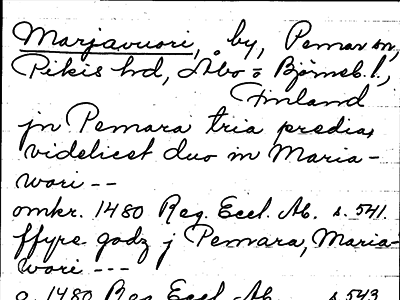 Marjavuori, by, Pemar sn,
Pikis hd, Åbo o Björneb. l.,
Finland
jn Pemara tria predia,
videlicet duo in Maria-
wori --
omkr. 1480 Reg. Eccl. Ab. s. 541.
ffyre godz j Pemara, Maria-
wori ---
o. 1480 Reg Eccl. Ab. s 543